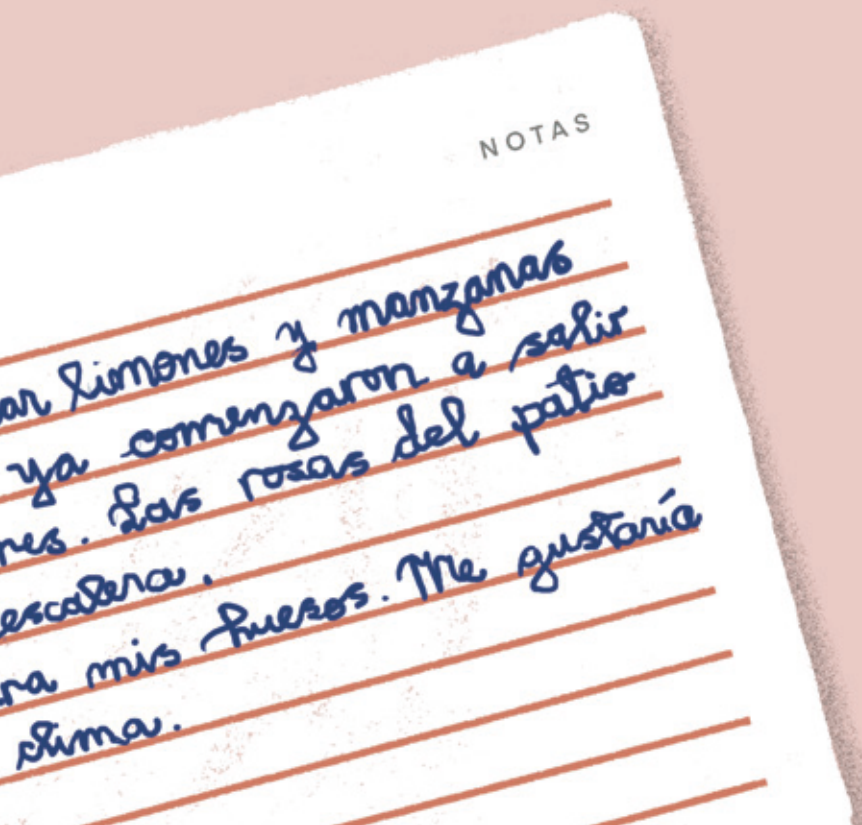 NOTAS
ar limones y manzanas
ya comenzaron a salir
res. Las rosas del patio
escalera.
ra mis huesos. Me gustaría
clima.